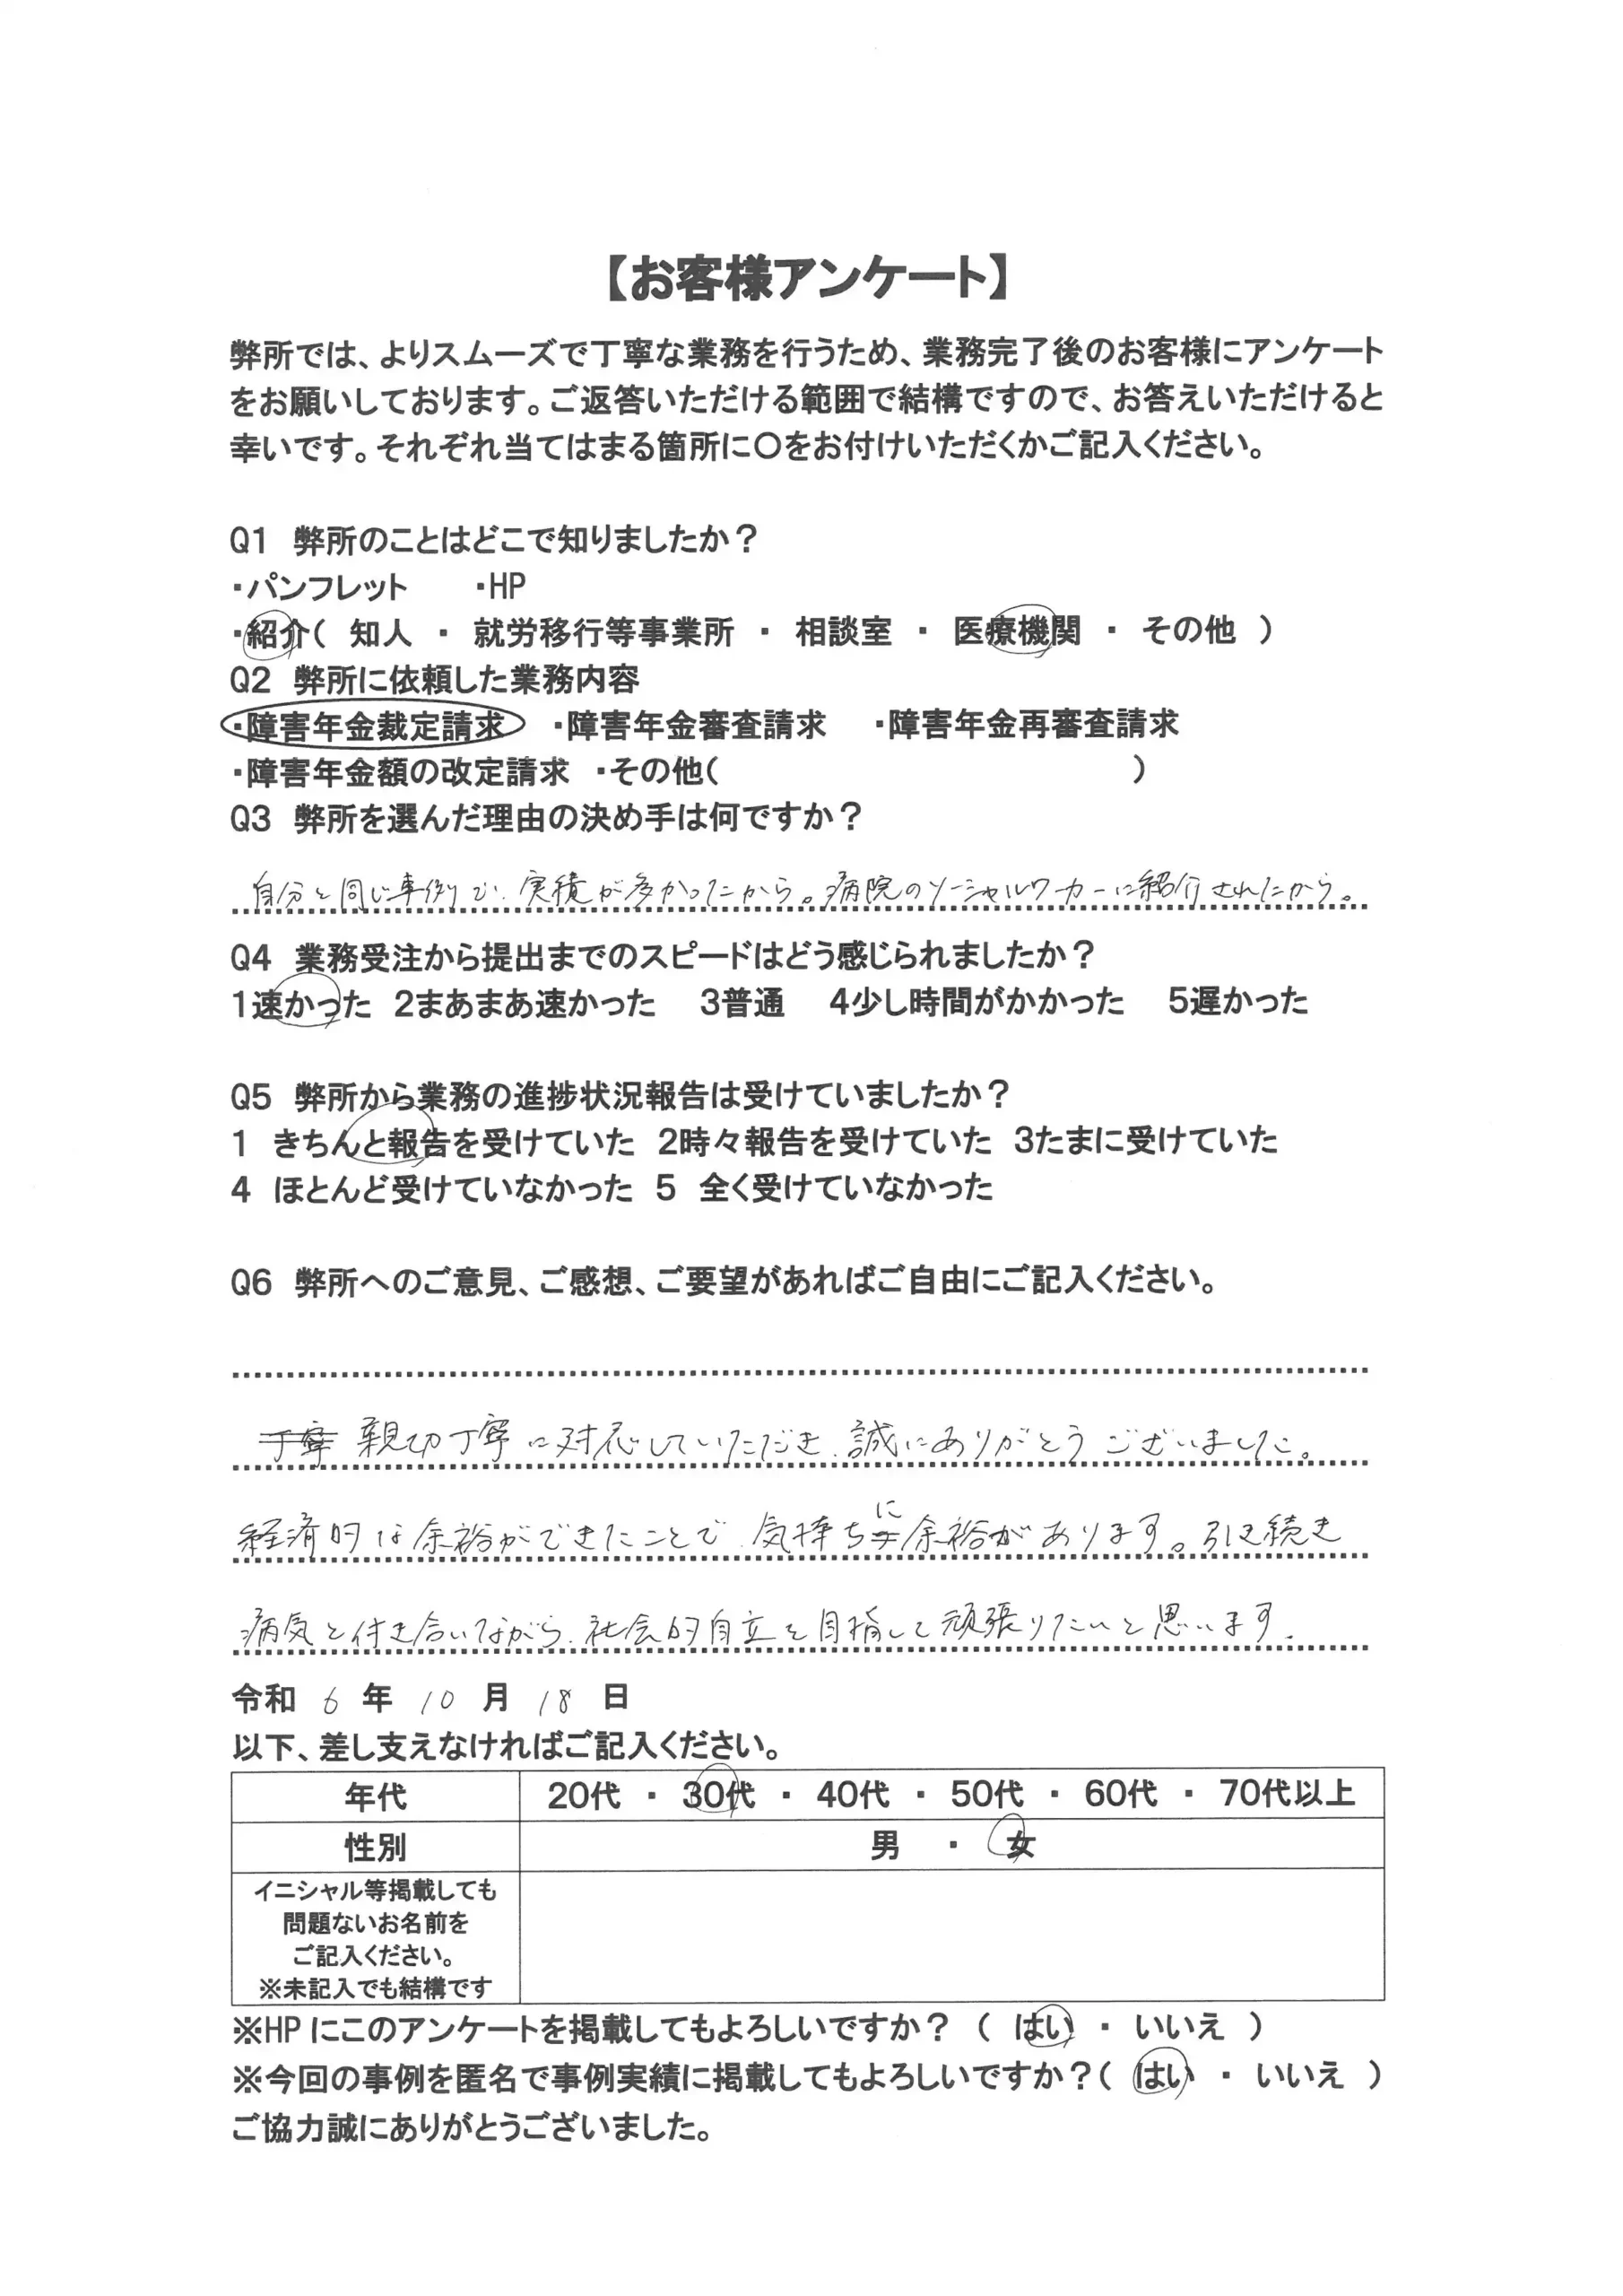 【お客様アンケート】
弊所では、よりスムーズで丁寧な業務を行うため、業務完了後のお客様にアンケート
をお願いしております。ご返答いただける範囲で結構ですので、お答えいただけると
幸いです。それぞれ当てはまる箇所に〇をお付けいただくかご記入ください。
Q1 弊所のことはどこで知りましたか？
・パンフレット ・HP
・紹介( 知人 ・ 就労移行等事業所 ・ 相談室 ・ 医療機関 ・ その他 )
Q2 弊所に依頼した業務内容
・障害年金裁定請求 ・障害年金審査請求 ・障害年金再審査請求
・障害年金額の改定請求 ・その他( )
Q3 弊所を選んだ理由の決め手は何ですか？
自分と同じ事例で、実積が多かったから。病院のソーシャルワーカーに紹介されたから。
Q4 業務受注から提出までのスピードはどう感じられましたか？
1速かった 2まあまあ速かった 3普通 4少し時間がかかった 5遅かった
Q5 弊所から業務の進捗状況報告は受けていましたか？
1 きちんと報告を受けていた 2時々報告を受けていた 3たまに受けていた
4 ほとんど受けていなかった 5 全く受けていなかった
Q6 弊所へのご意見、ご感想、ご要望があればご自由にご記入ください。
丁寧 親切丁寧に対応していただき、誠にありがとうございました。
経済的な余裕ができたことで、気持ちに余裕があります。引き続き
病気と付き合いながら、社会的自立を目指して頑張りたいと思います。
令和 6 年 10 月 18 日
以下、差し支えなければご記入ください。
年代 20代 ・ 30代 ・ 40代 ・ 50代 ・ 60代 ・ 70代以上
性別 男 ・ 女
イニシャル等掲載しても
問題ないお名前を
ご記入ください。
※未記入でも結構です
※HPにこのアンケートを掲載してもよろしいですか？ ( はい ・ いいえ )
※今回の事例を匿名で事例実績に掲載してもよろしいですか？( はい ・ いいえ )
ご協力誠にありがとうございました。